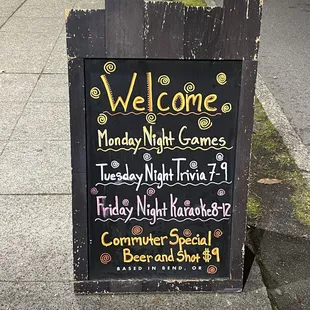 Welcome
Monday Night Games
Tuesday Night Trivia 7-9
Friday Night Karaoke 8-12
Commuter Special
Beer and Shot $9
BASED IN BEND, OR